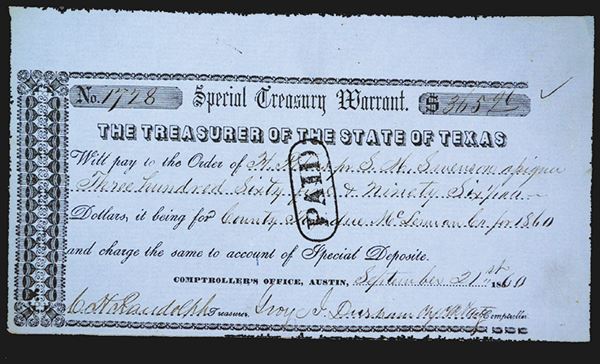 No. 1728 Special Treasury Warrant. $ 365 96
THE TREASURER OF THE STATE OF TEXAS
Will pay to the Order of S. M. Swenson
Three hundred Sixty & Ninety Six
Dollars, it being for County due McLennan Co for 1860
PAID
and charge the same to account of Special Deposite.
COMPTROLLER'S OFFICE, AUSTIN, September 21st 1860
C. H. Randolph Treasurer. Comptroller